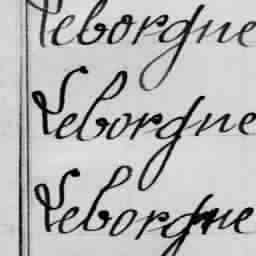 Leborgne
Leborgne
Leborgne